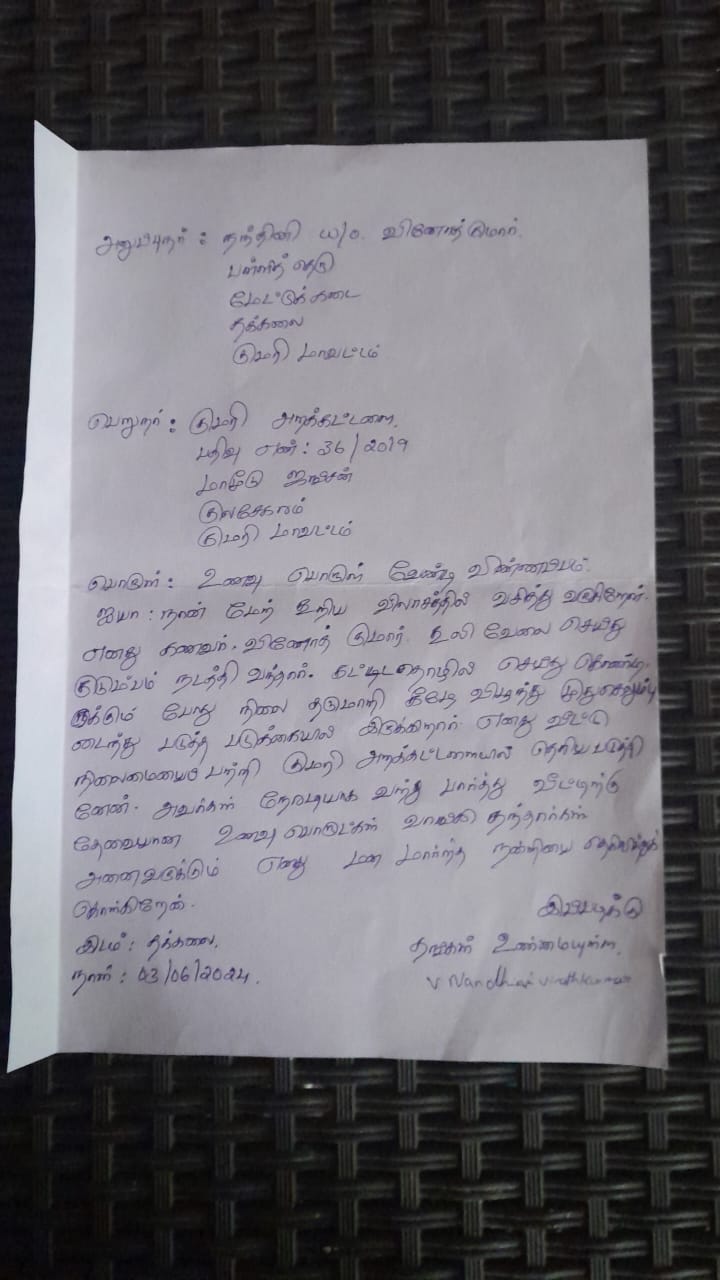 அனுப்புநர் : நந்தினி w/o. வினோத்குமார்.
பள்ளித் தெரு
மேட்டுக்கடை
தக்கலை
குமரி மாவட்டம்
பெறுநர் : குமரி அறக்கட்டளை.
பதிவு எண் : 36/2019
மாமூடு ஜங்சன்
குலசேகரம்
குமரி மாவட்டம்
பொருள் : உணவு பொருள் வேண்டி விண்ணப்பம்.
ஐயா : நான் மேற் கூறிய விலாசத்தில் வசித்து வருகிறேன்.
எனது கணவர். வினோத் குமார். கூலி வேலை செய்து
குடும்பம் நடத்தி வந்தார். கட்டிடதொழில் செய்து கொண்டி
ருக்கும் போது நிலை தடுமாறி கீழே விழுந்து முதுகெலும்பு
டைந்து படுத்த படுக்கையில் இருக்கிறார். எனது வீட்டு
நிலைமையைப் பற்றி குமரி அறக்கட்டளையில் தெரிய படுத்தி
னேன். அவர்கள் நேரடியாக வந்து பார்த்து வீட்டிற்கு
தேவையான உணவு பொருட்கள் வாங்கி தந்தார்கள்
அனைவருக்கும் எனது மன மார்ந்த நன்றியை தெரிவித்துக்
கொள்கிறேன்.
இப்படிக்கு
இடம் : தக்கலை. தங்கள் உண்மையுள்ள.
நாள் : 03/06/2024. V Nandhini